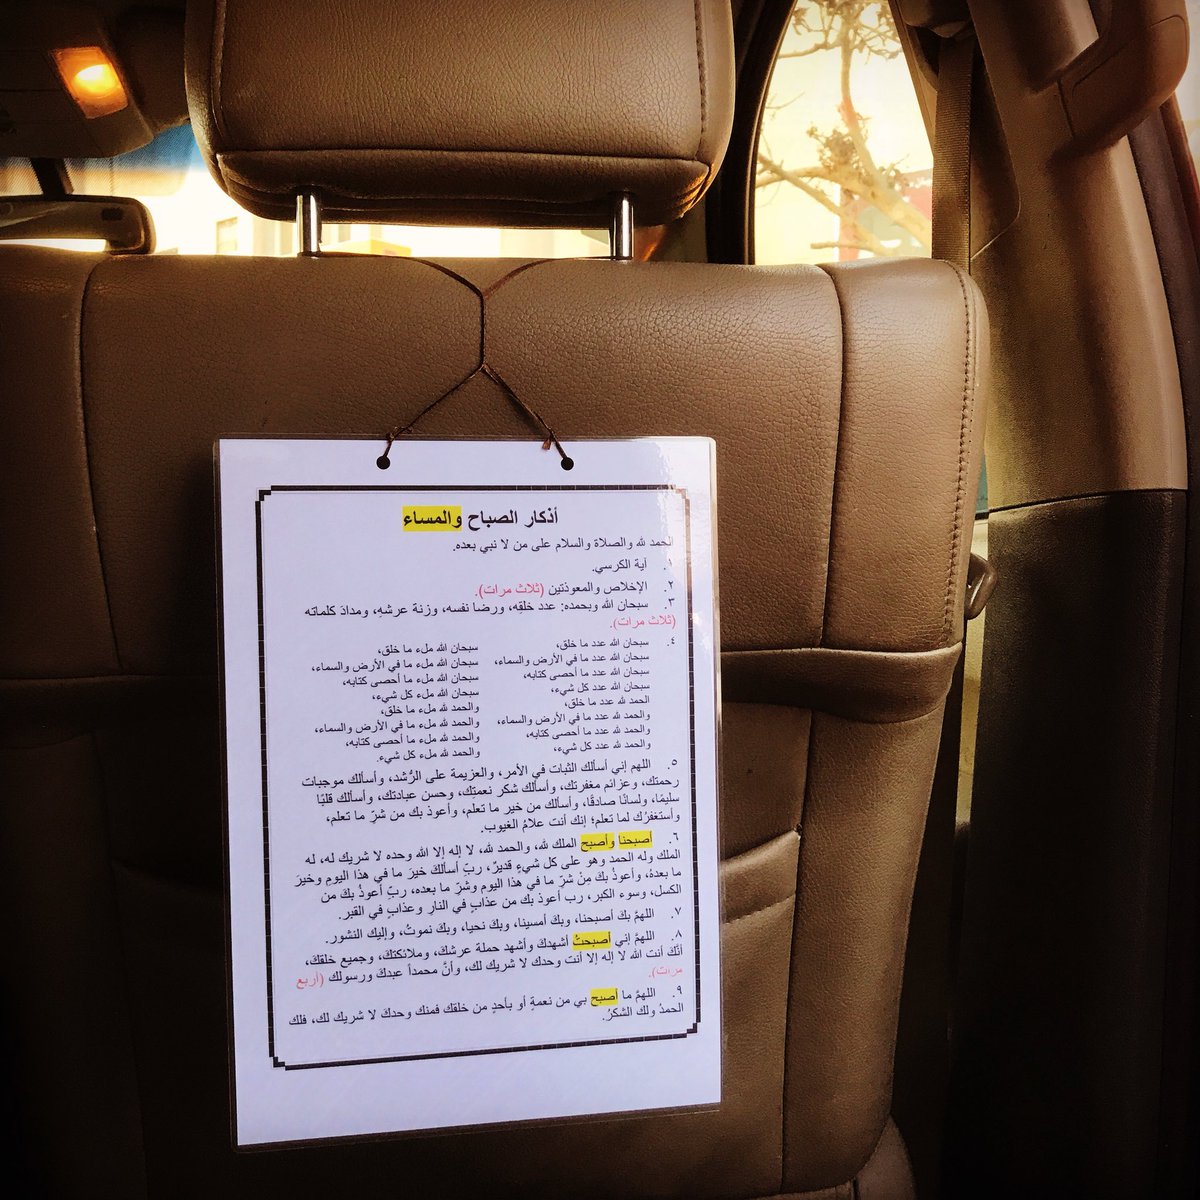 أذكار الصباح والمساء
الحمد لله والصلاة والسلام على من لا نبي بعده.
١. آية الكرسي.
٢. الإخلاص والمعوذتين (ثلاث مرات).
٣. سبحان الله وبحمده: عدد خلقِه، ورضا نفسه، وزنة عرشهِ، ومدادَ كلماته
(ثلاث مرات).
٤. سبحان الله عدد ما خلق، سبحان الله ملء ما خلق،
سبحان الله عدد ما في الأرض والسماء، سبحان الله ملء ما في الأرض والسماء،
سبحان الله عدد ما أحصى كتابه، سبحان الله ملء ما أحصى كتابه،
سبحان الله عدد كل شيء، سبحان الله ملء كل شيء،
الحمد لله عدد ما خلق، والحمد لله ملء ما خلق،
والحمد لله عدد ما في الأرض والسماء، والحمد لله ملء ما في الأرض والسماء،
والحمد لله عدد ما أحصى كتابه، والحمد لله ملء ما أحصى كتابه،
والحمد لله عدد كل شيء، والحمد لله ملء كل شيء.
٥. اللهم إني أسألك الثبات في الأمر، والعزيمة على الرُّشد، وأسألك موجبات
رحمتك، وعزائم مغفرتك، وأسألك شكر نعمتك، وحسن عبادتك، وأسألك قلبًا
سليمًا، ولسانًا صادقًا، وأسألك من خير ما تعلم، وأعوذ بك من شرِّ ما تعلم،
وأستغفرُك لما تعلم؛ إنك أنت علامُ الغيوب.
٦. أصبحنا وأصبح الملك لله، والحمد لله، لا إله إلا الله وحده لا شريك له، له
الملك وله الحمد وهو على كل شيءٍ قديرٌ، ربِّ أسألكَ خيرَ ما في هذا اليومِ وخيرَ
ما بعدهُ، وأعوذُ بكَ مِنْ شرِّ ما في هذا اليوم وشرِّ ما بعده، ربِّ أعوذُ بك من
الكسل، وسوء الكبر، رب أعوذ بك من عذابٍ في النارِ وعذابٍ في القبر.
٧. اللهمَّ بك أصبحنا، وبكَ أمسينا، وبكَ نحيا، وبكَ نموتُ، وإليك النشور.
٨. اللهمَّ إني أصبحتُ أشهدكَ وأشهد حملة عرشكَ، وملائكتكَ، وجميع خلقكَ،
أنَّكَ أنت الله لا إله إلا أنت وحدك لا شريك لك، وأنَّ محمداً عبدكَ ورسولك (أربع
مرات).
٩. اللهمَّ ما أصبح بي من نعمةٍ أو بأحدٍ من خلقك فمنك وحدكَ لا شريكَ لك، فلك
الحمدُ ولك الشكرُ.